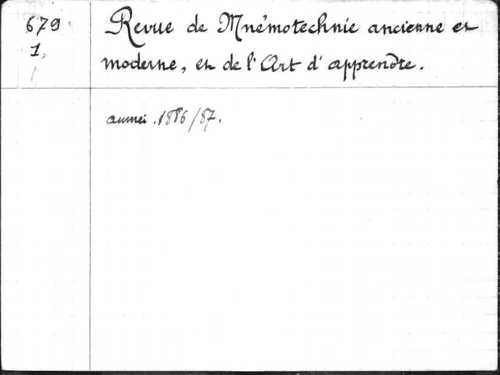 679 Revue de Mnémotechnie ancienne et
1, moderne, et de l'Art d'apprendre.
année .1886/87.